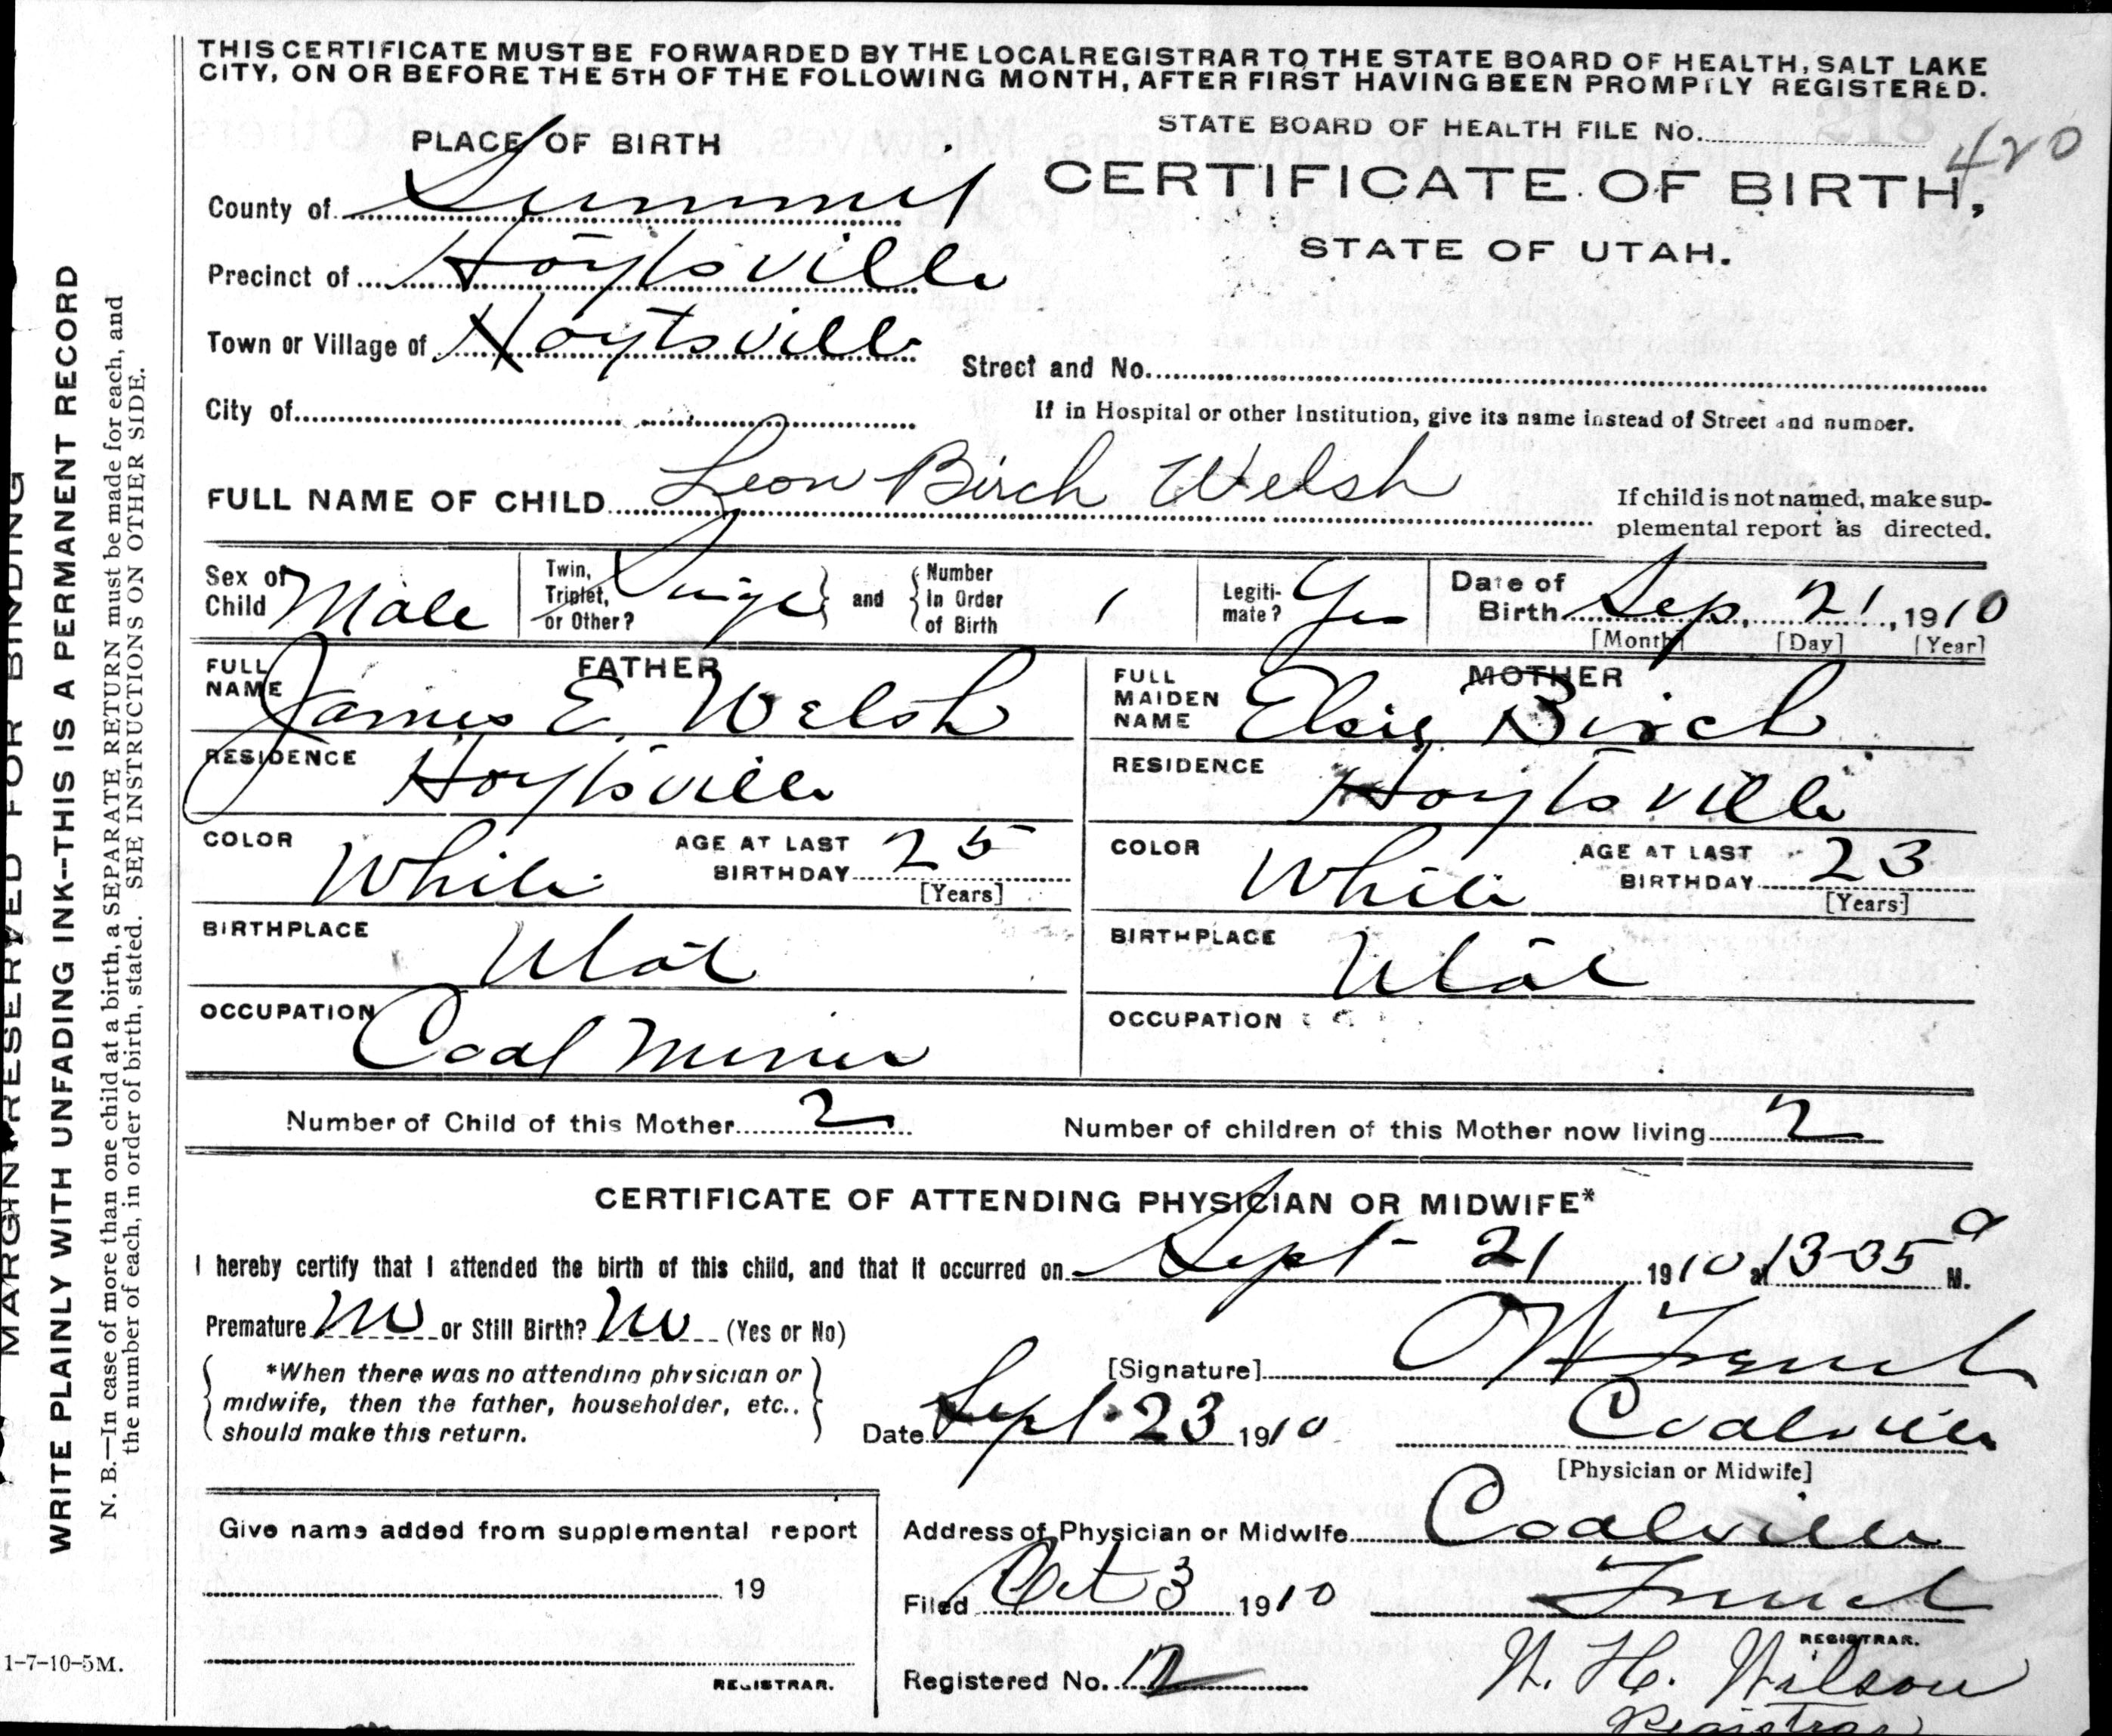 THIS CERTIFICATE MUST BE FORWARDED BY THE LOCAL REGISTRAR TO THE STATE BOARD OF HEALTH, SALT LAKE
CITY, ON OR BEFORE THE 5TH OF THE FOLLOWING MONTH, AFTER FIRST HAVING BEEN PROMPTLY REGISTERED.
STATE BOARD OF HEALTH FILE NO. 420
PLACE OF BIRTH
CERTIFICATE OF BIRTH,
STATE OF UTAH.
County of Summit
Precinct of Hoytsville
Town or Village of Hoytsville
Street and No.
City of
If in Hospital or other Institution, give its name instead of Street and number.
FULL NAME OF CHILD Leon Birch Welsh
If child is not named, make sup-
plemental report as directed.
Sex of Child Male
Twin, Triplet, or Other? Single
and Number in Order of Birth 1
Legiti-mate? Yes
Date of Birth Sep. 21, 1910
[Month] [Day] [Year]
FATHER
FULL NAME James E. Welsh
RESIDENCE Hoytsville
COLOR White
AGE AT LAST BIRTHDAY 25
[Years]
BIRTHPLACE Utah
OCCUPATION Coal Miner
MOTHER
FULL MAIDEN NAME Elsie Birch
RESIDENCE Hoytsville
COLOR White
AGE AT LAST BIRTHDAY 23
[Years]
BIRTHPLACE Utah
OCCUPATION
Number of Child of this Mother 2
Number of children of this Mother now living 2
CERTIFICATE OF ATTENDING PHYSICIAN OR MIDWIFE*
I hereby certify that I attended the birth of this child, and that it occurred on Sept 21 1910 at 3-35 a M.
Premature No or Still Birth? No (Yes or No)
*When there was no attending physician or
midwife, then the father, householder, etc.,
should make this return.
[Signature]
Date Sept 23 1910
Coalville
[Physician or Midwife]
Address of Physician or Midwife Coalville
Filed Oct 3 1910
REGISTRAR.
Registered No. 12
W. H. Wilson
Registrar
Give name added from supplemental report
19
REGISTRAR.
MARGIN RESERVED FOR BINDING
WRITE PLAINLY WITH UNFADING INK--THIS IS A PERMANENT RECORD
N. B.—In case of more than one child at a birth, a SEPARATE RETURN must be made for each, and
the number of each, in order of birth, stated. SEE INSTRUCTIONS ON OTHER SIDE.
1-7-10-5M.